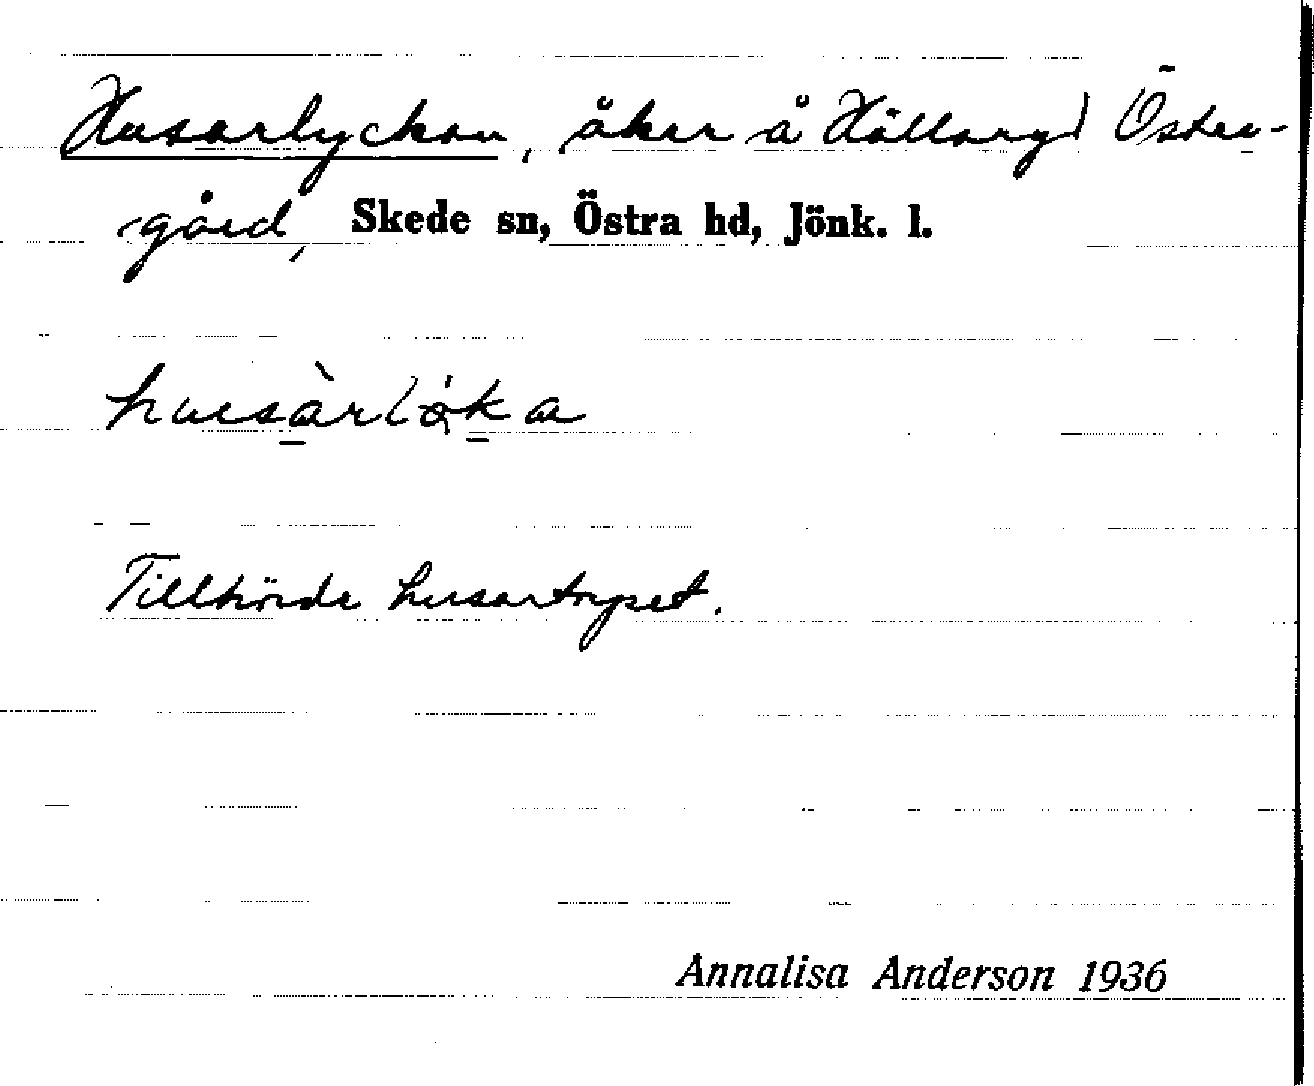 Husarlyckan, åker å Hållaryd Öster-
gård, Skede sn, Östra hd, Jönk. l.
husàrlø̀ka
Tillhörde husartorpet.
Annalisa Anderson 1936